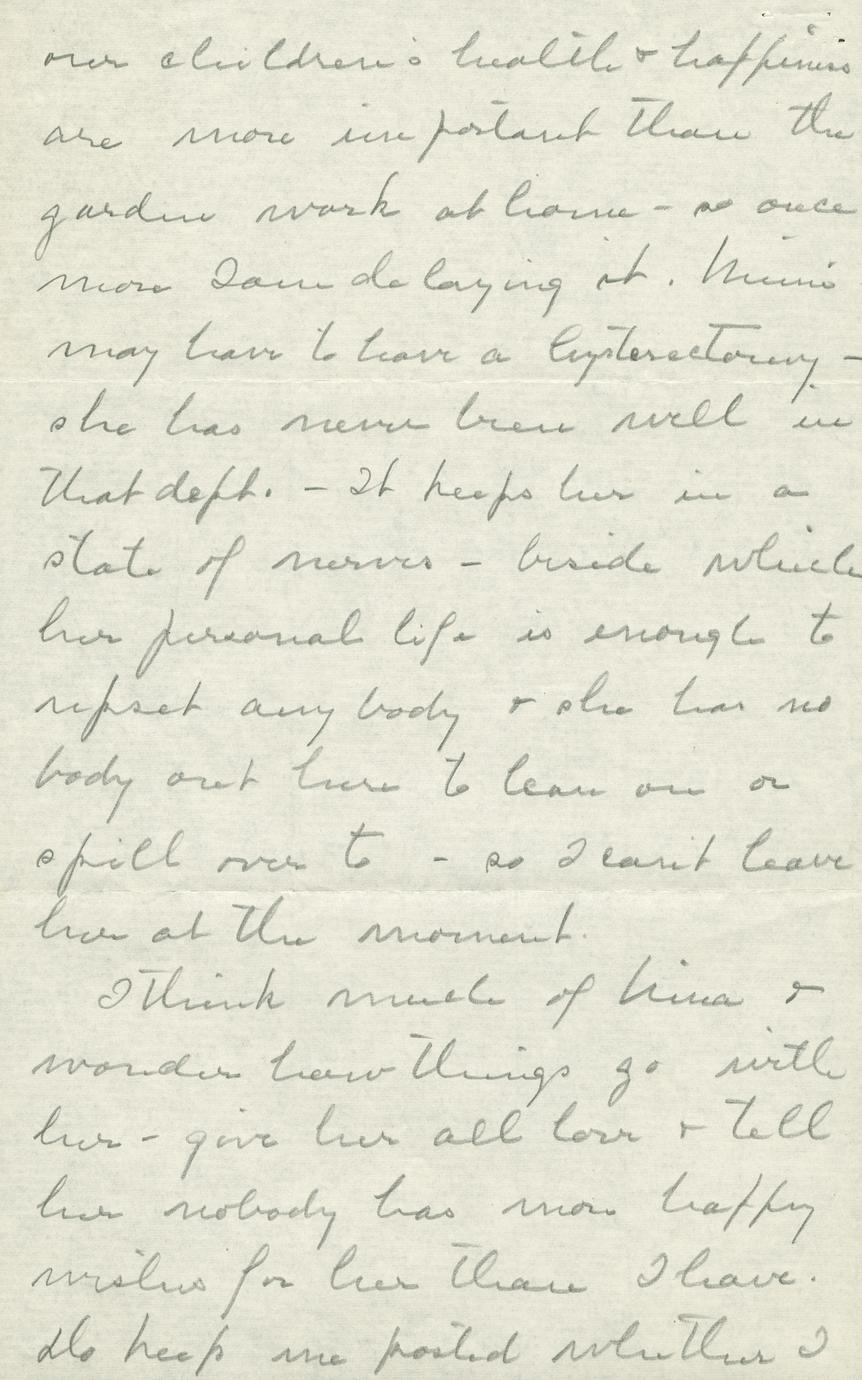 our children's health & happiness
are more important than the
garden work at home - so once
more I am delaying it. Mimi
may have to have a hysterectomy -
she has never been well in
that dept. - It keeps her in a
state of nerves - beside which
her personal life is enough to
upset any body & she has no
body out here to lean on or
spill over to - so I can't leave
her at the moment.
I think much of Nina &
wonder how things go with
her - give her all love & tell
her nobody has more happy
wishes for her than I have.
Do keep me posted whether I